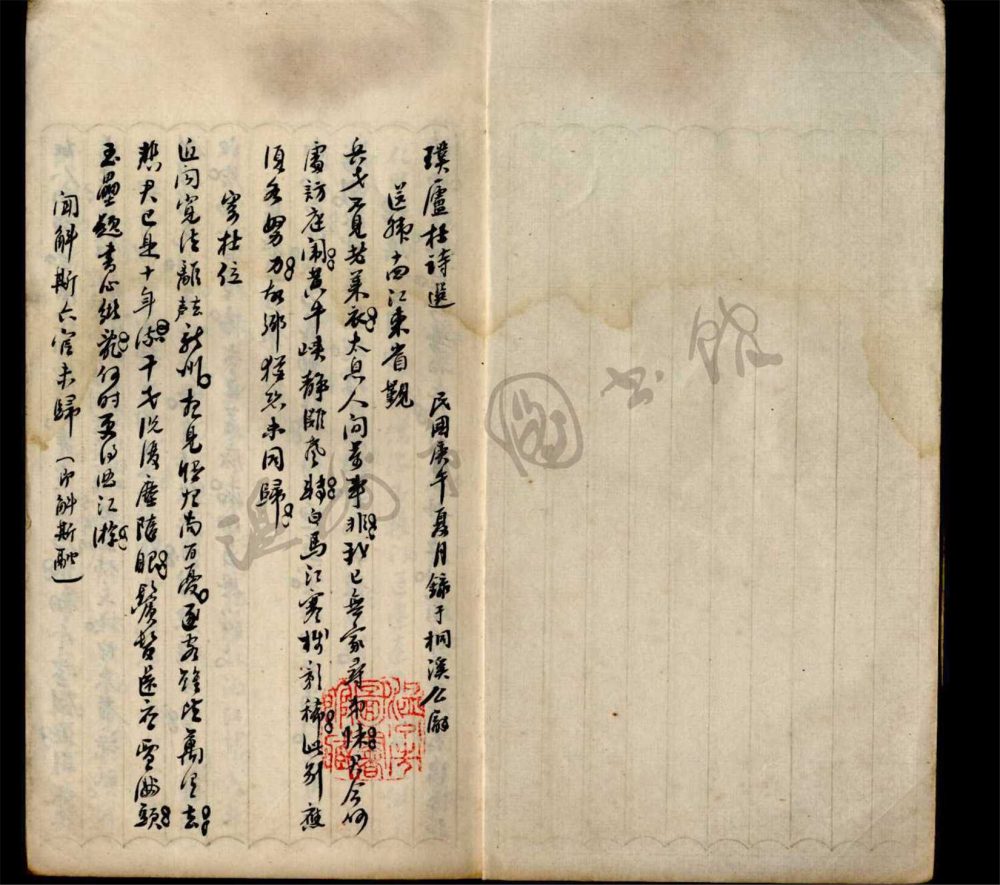 璞廬杜詩選　民國庚午夏月錄于桐溪公廨
送韓十四江東省覲
兵戈不見老萊衣太息人間萬事非我已無家尋弟妹君今何
處訪庭闈黃牛峽靜灘聲轉白馬江寒樹影稀此別應
須各努力故鄉猶恐未同歸
寄杜位
近聞寬法離新州想見懷歸尚百憂逐客雖皆萬里去
悲君已是十年流干戈況復塵隨眼鬢髮還應雪滿頭
玉壘題書心緒亂何時更得曲江游
聞斛斯六官未歸（即斛斯融）
温州圖书馆